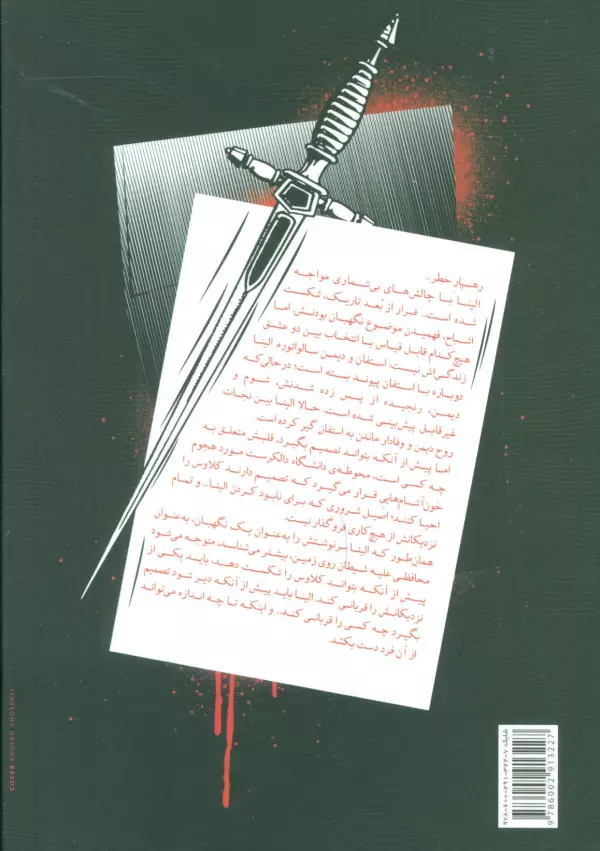 رهسپار خطر...
الینا با چالش‌های بی‌شماری مواجه
شده است. فرار از بُعد تاریک، شکست
اشباح، فهمیدن موضوع نگهبان بودنش. اما
هیچ‌کدام قابل قیاس با انتخاب بین دو عشق
زندگی‌اش نیست: استفان و دیمن سالواتوره. الینا
دوباره با استفان پیوند بسته است؛ درحالی‌که
دیمن، رنجیده از پس زده شدنش، شوم و
غیرقابل پیش‌بینی شده است. حالا الینا بین نجات
روح دیمن و وفادار ماندن به استفان گیر کرده است.
اما پیش از آنکه بتواند تصمیم بگیرد، قلبش متعلق به
چه کسی است، محوطه‌ی دانشگاه دالکرست مورد هجوم
خون‌آشام‌هایی قرار می‌گیرد که تصمیم دارند کلاوس را
احیا کنند؛ اصیل شروری که برای نابود کردن الینا.. و تمام
نزدیکانش از هیچ‌کاری فروگذار نیست.
همان‌طور که الینا سرنوشتش را به‌عنوان یک نگهبان، به‌عنوان
محافظی علیه شیطان روی زمین، بیشتر می‌شناسد، متوجه می‌شود
پیش از آنکه بتواند کلاوس را شکست دهد، باید یکی از
نزدیکانش را قربانی کند. الینا باید پیش از آنکه دیر شود تصمیم
بگیرد چه کسی را قربانی کند.. و اینکه تا چه اندازه می‌تواند
از آن فرد دست بکشد.
COVER KHOSRO KHOSRAVI
شابک ۷-۳۲۲-۲۹۱-۶۰۰-۹۷۸
9786002913227